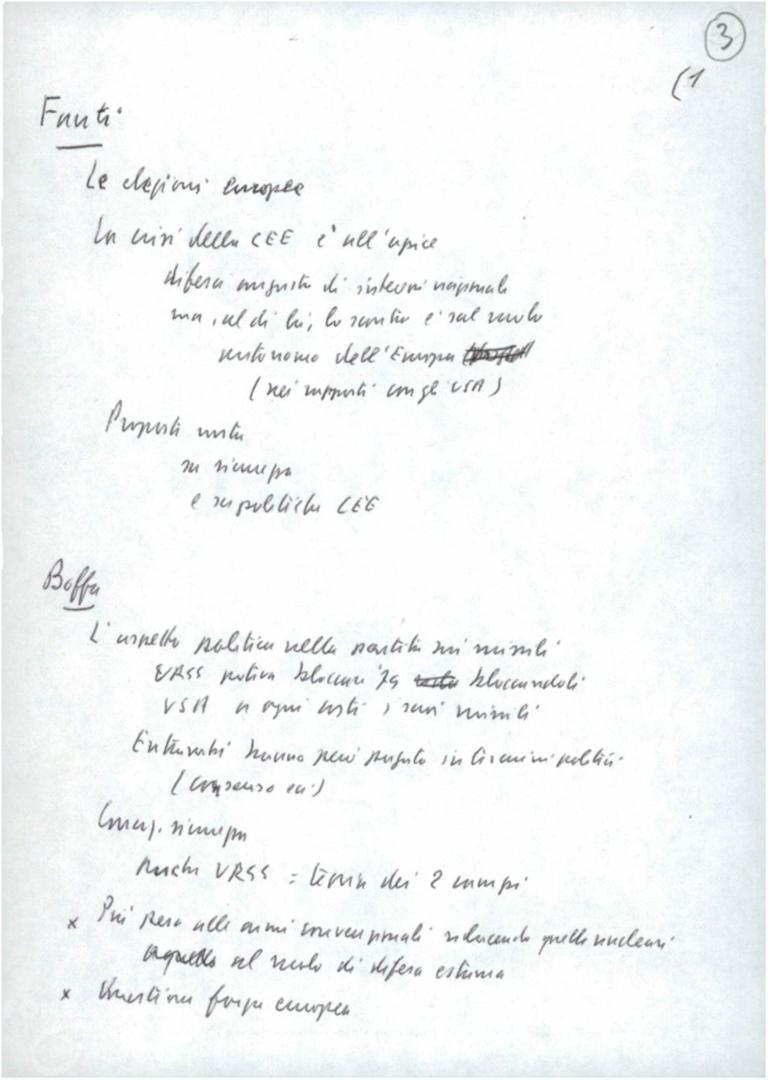 3
(1
Fanti
Le elezioni europee
La crisi della CEE è all'apice
difesa angusta di interessi nazionali
ma, al di là, lo scontro è sul ruolo
autonomo dell'Europa
(nei rapporti con gli USA)
Proposta nostra
su sicurezza
e su politiche CEE
Boffa
L'aspetto politico nella partita sui missili
URSS poteva bloccandoli
USA a ogni costo i suoi missili
Entrambi hanno però pagato in termini politici
(consenso
sicurezza
Anche URSS = teoria dei 2 campi
x Più peso alle armi convenzionali riducendo quelle nucleari
al ruolo di difesa estrema
x Questione forza europea